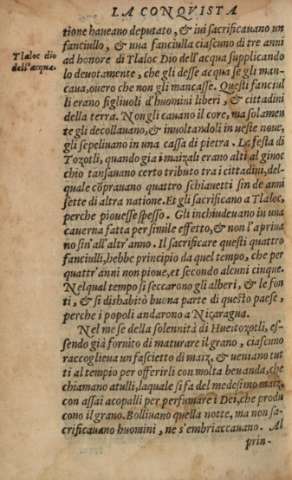 LA CONQVISTA
tione haueano deputato, & iui sacrificauano un
fanciullo, & una fanciulla ciascuno di tre anni
Tlaloc dio
dell'acqua.
ad honore di Tlaloc Dio dell'acqua supplicando
lo deuotamente, che gli desse acqua se gli man-
caua, ouero che non gli mancasse. Questi fanciul
li erano figliuoli d'huomini liberi, & cittadini
della terra. Non gli cauano il core, ma solamen
te gli decollauano, & inuoltandoli in ueste noue,
gli sepeliuano in una cassa di pietra. La festa di
Tozotli, quando gia i maizali erano alti al ginoc
chio tansauano certo tributo tra i cittadini, del-
quale cōprauano quattro schiauetti sin de anni
sette di altra natione. Et gli sacrificano a Tlaloc,
perche piouesse spesso. Gli inchiudeuano in una
cauerna fatta per simile effetto, & non l'apriua
no sin'all'altr'anno. Il sacrificare questi quattro
fanciulli, hebbe principio da quel tempo, che per
quattr'anni non pioue, et secondo alcuni cinque.
Nel qual tempo si seccarono gli alberi, & le fon
ti, & si dishabitò buona parte di questo paese,
perche i popoli andarono a Nizaragua.
Nel mese della solennità di Hueitozotli, es-
sendo già fornito di maturare il grano, ciascuno
raccoglieua un fascietto di maiz, & ueniano tut
ti al tempio per offerirli con molta beuanda, che
chiamano atulli, laquale si fa del medesimo maiz,
con assai acopalli per perfumare i Dei, che produ
cono il grano. Bolliuano quella notte, ma non sa-
crificauano huomini, ne s'embriaccauano. Al
prin-